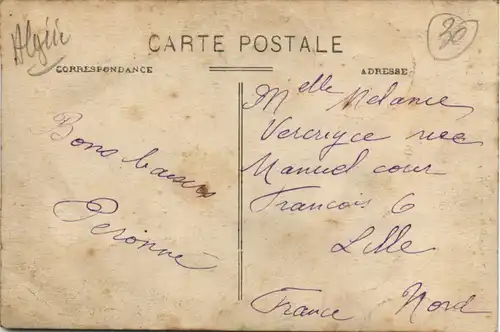 Algérie
CARTE POSTALE
30
CORRESPONDANCE
ADRESSE
Melle Mélanie
Vercruyce rue
Manuel cour
Francois 6
Lille
France Nord
Bons baisers
Peronne